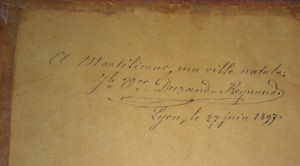 A Montélimar, ma ville natale.
Durand-Reynaud.
Lyon, le 27 juin 1897.